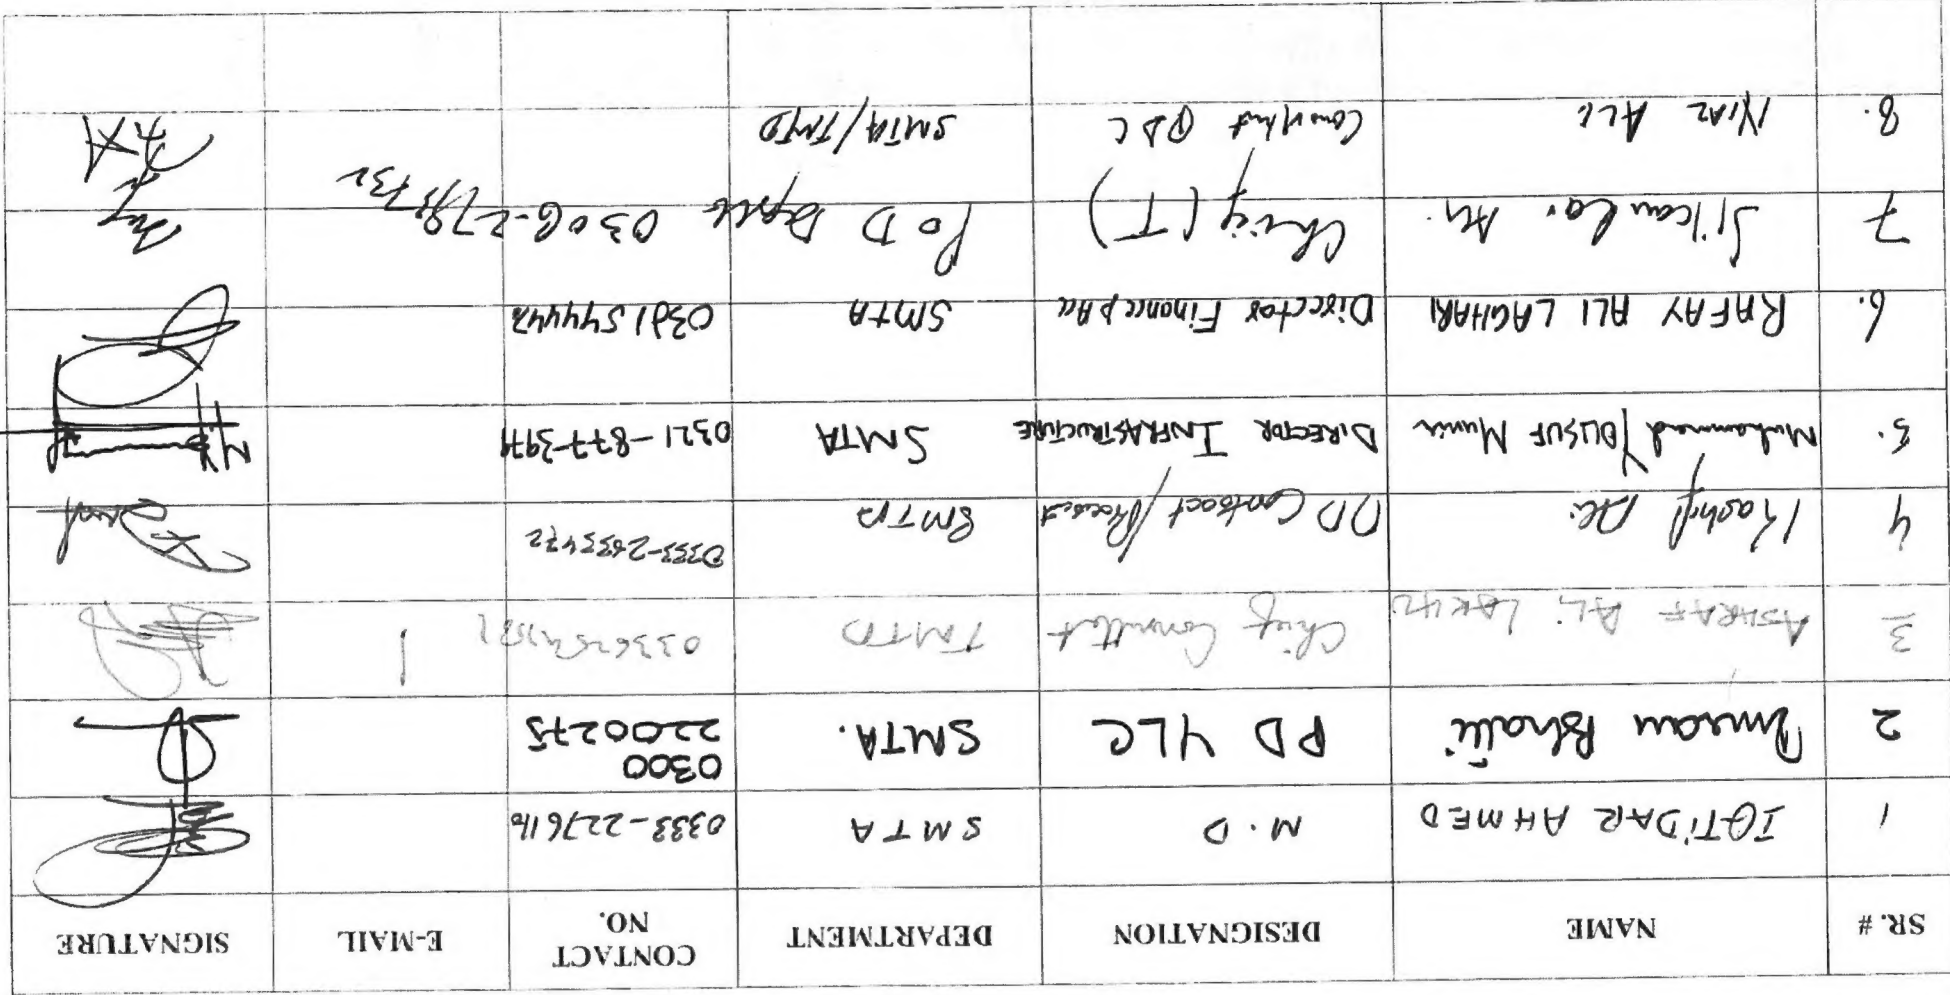 SR. # NAME DESIGNATION DEPARTMENT CONTACT NO. E-MAIL SIGNATURE
1 IQTiDAR AHMED M.D SMTA 0333-2276116
2 Imran Bhatti PD YLC SMTA. 0300 2200275
3 ASHRAF ALi Chief Consultant TMTD
4 Kashif Ali DD Contract/ SMTA 0333-2633472
5. Muhammad YOUSUF Munir DIRECTOR INFRASTRUCTURE SMTA 0321-877-3979
6. RAFAY ALI LAGHARI Director Finance SMTA
7 Sikandar Ali Chief (T) P&D
8. NIAZ ALi Consultant SMTA/TMTD